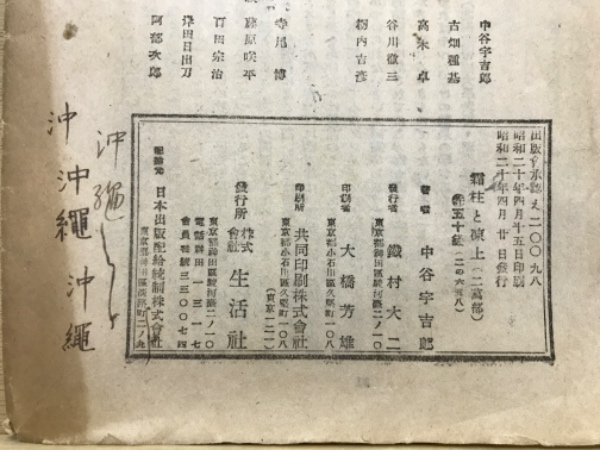 中谷宇吉郎
古畑種基
高木卓
谷川徹三
寺尾博
藤原咲平
百田宗治
岸田日出刀
阿部次郎
出版會承認え二〇〇九八
昭和二十年四月十五日印刷
昭和二十年四月廿日發行
霜柱と凍上(二萬部)
著者 中谷宇吉郎
發行者 鐵村大二
東京都神田區駿河臺二ノ一〇
印刷者 大橋芳雄
東京都小石川區久堅町一〇八
印刷所 共同印刷株式會社
東京都小石川區久堅町一〇八
(東京一二一)
發行所 株式會社 生活社
東京都神田區駿河臺二ノ一〇
配給元 日本出版配給統制株式會社
東京都神田區淡路町二ノ九
沖繩
沖繩
沖沖繩